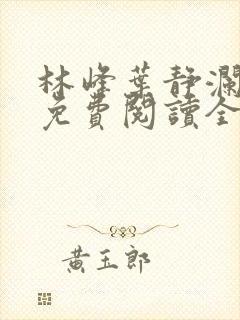 林峰葉静瀾
免費閱讀全
黃玉郎